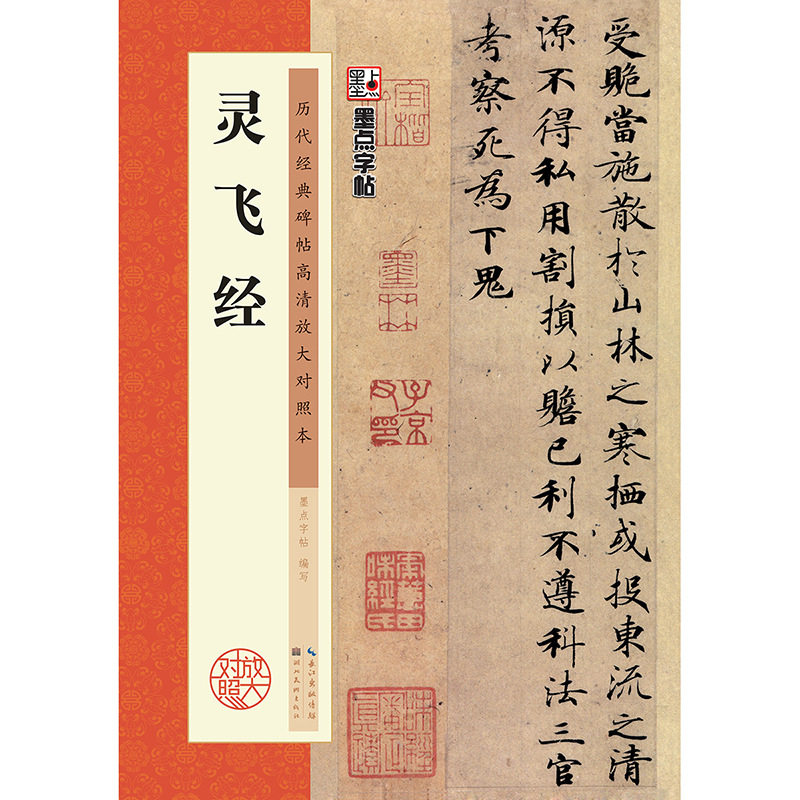 受賄當施散於山林之寒栖或投東流之清
源不得私用割損以贍己利不遵科法三官
考察死為下鬼
墨点
墨点字帖
历代经典碑帖高清放大对照本
墨点字帖 编写
灵飞经
放大对照
长江出版传媒
湖北美术出版社